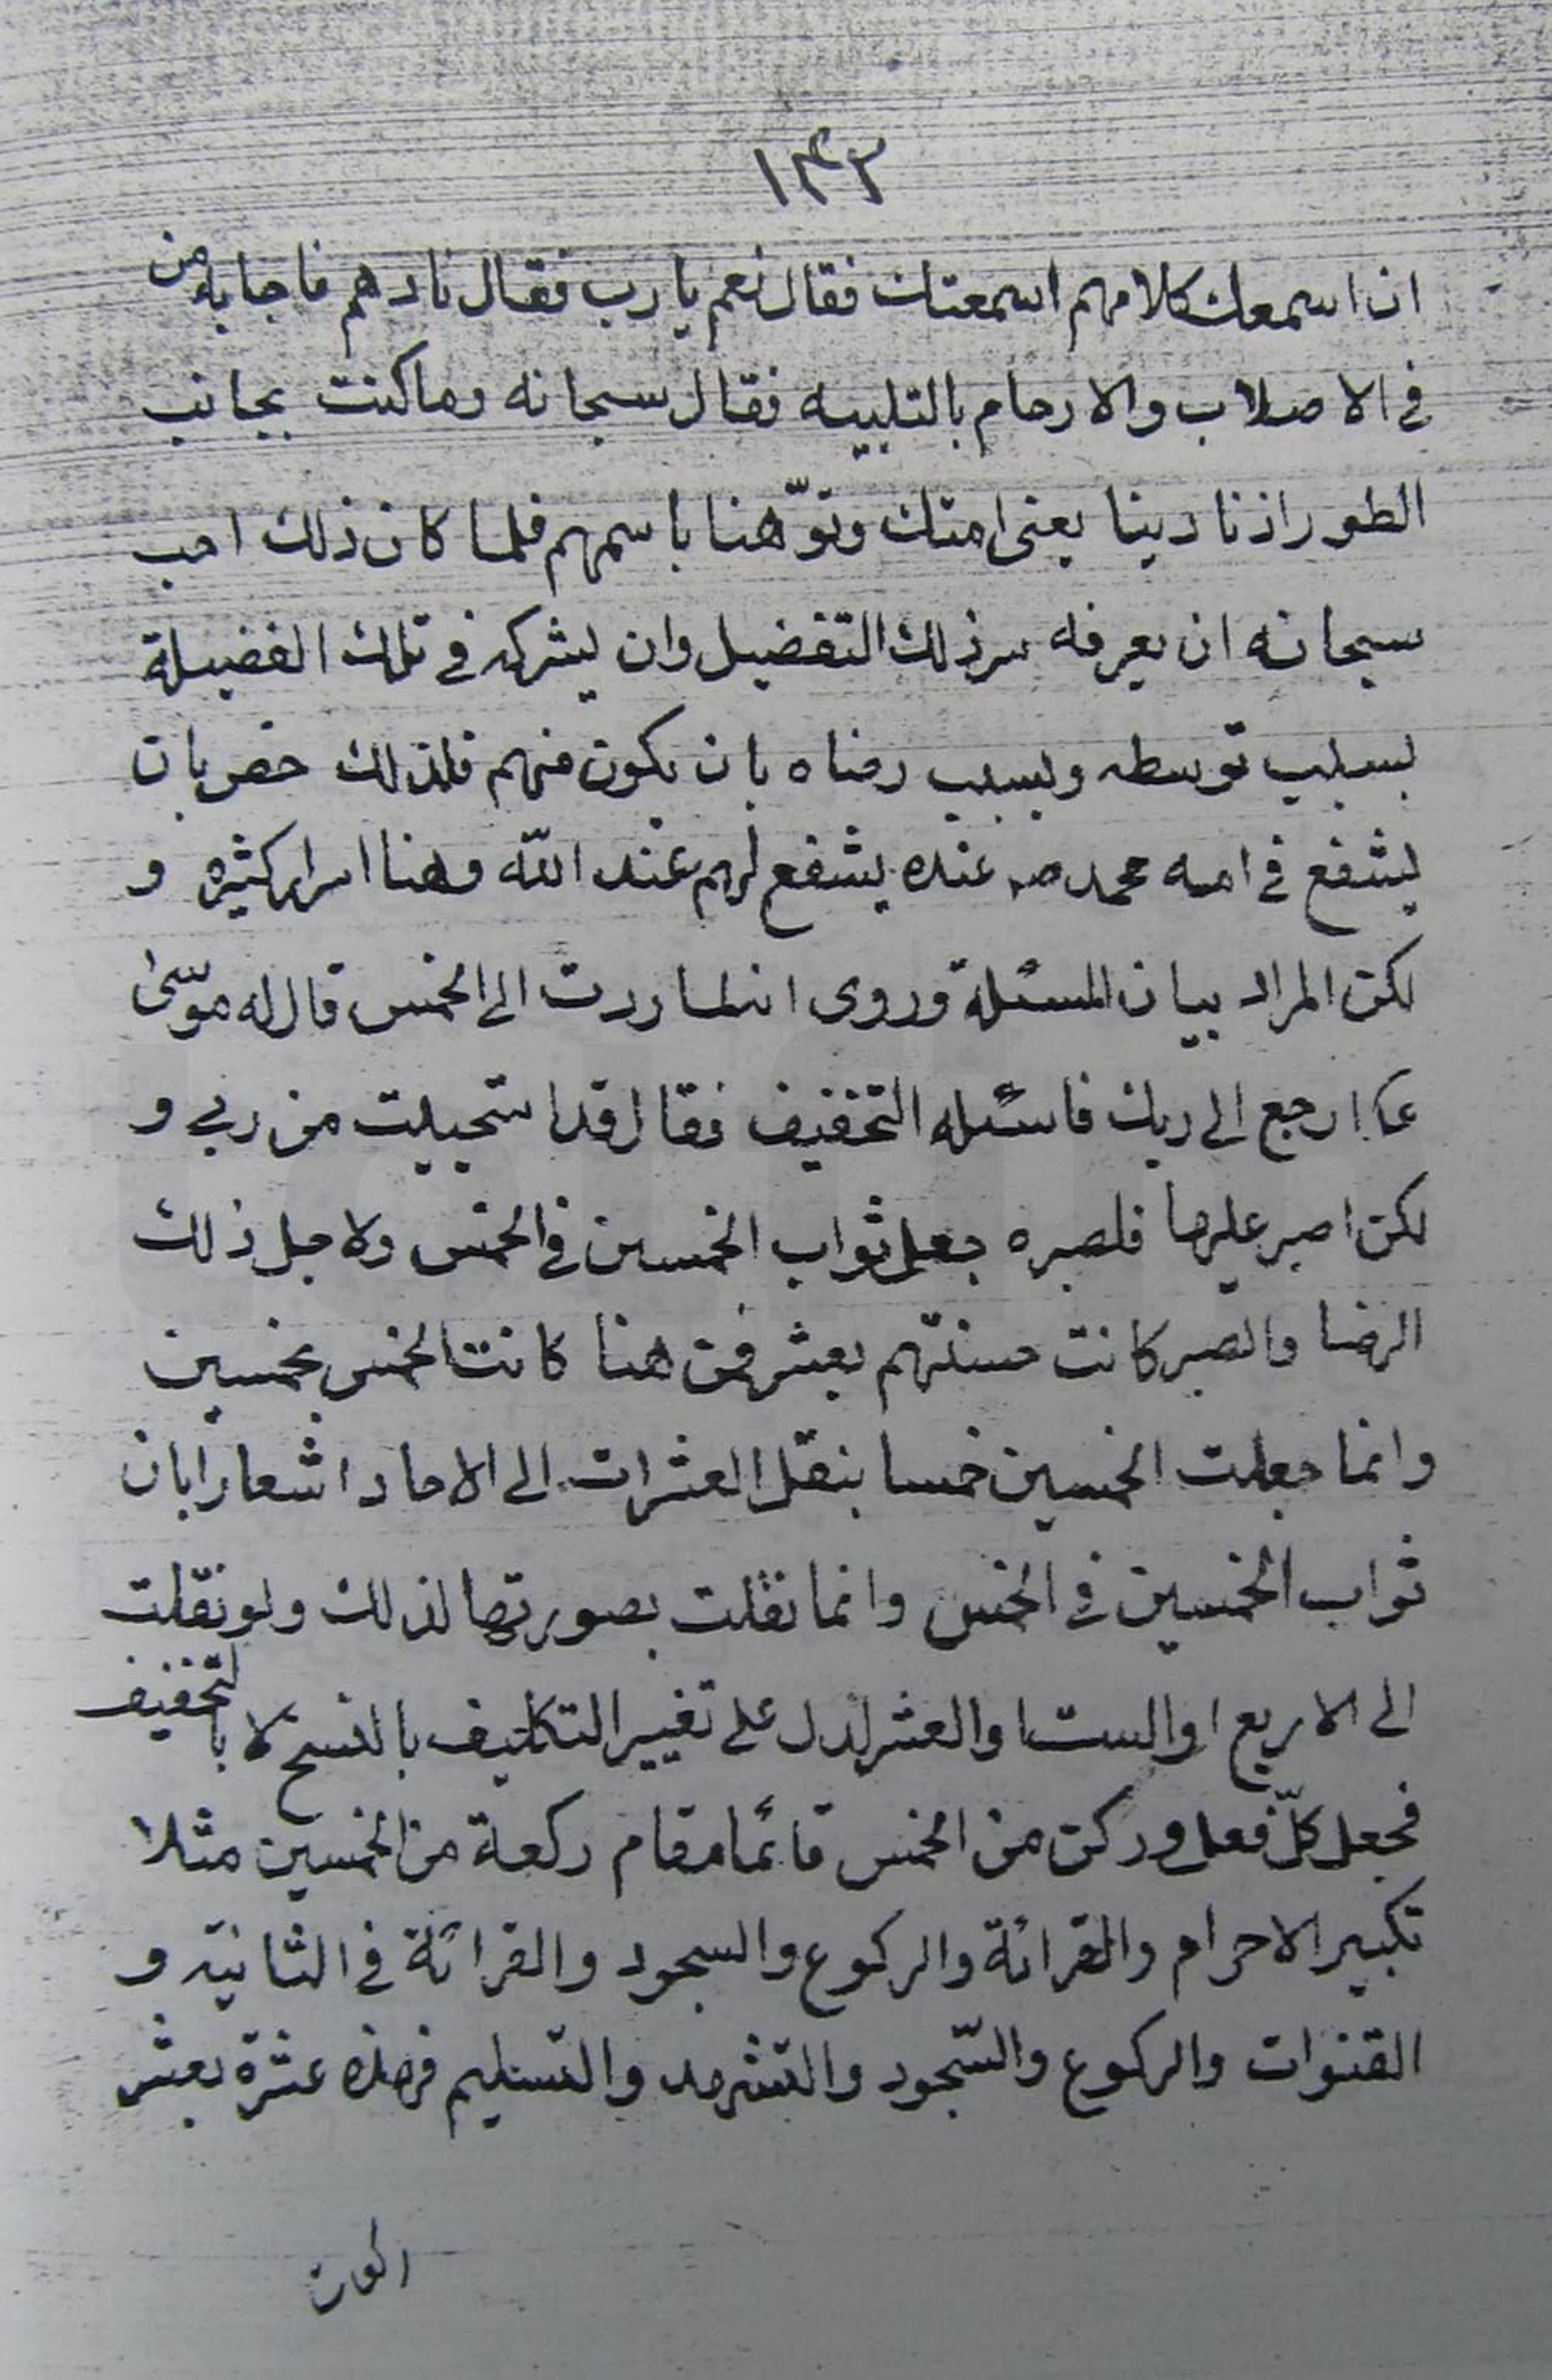 ١٣٢
ان اسمعك كلامهم اسمعتك فقال نعم يا رب فقال نادهم فاجابه من
في الاصلاب والارحام بالتلبيه فقال سبحانه وما كنت بجانب
الطور اذ نادينا يعني امتك ونوّهنا باسمهم فلما كان ذلك احب
سبحانه ان يعرفه سر ذلك التفضيل وان يشركه في تلك الفضيلة
بسبب توسطه وبسبب رضاه بان يكون منهم فلذلك خص بان
يشفع في امه محمد صه عنده يشفع لهم عند اللّه وهنا اسرار كثيره و
لكن المراد بيان المسئلة وروى انه لما ردت الى الخمس قال له موسىٰ
عا ارجع الى ربك فاسئله التخفيف فقال قد استحييت من ربي و
لكن اصبر عليها فلصبره جعل ثواب الخمسين في الخمس ولاجل ذلك
الرضا والصبر كانت حسنتهم بعشر فمن هنا كانت الخمس بخمسين
وانما جعلت الخمسين خمسا بنقل العشرات الى الاحاد اشعارا بان
ثواب الخمسين في الخمس وانما نقلت بصورتها لذلك ولو نقلت
الى الاربع او الست او العشر لدل على تغيير التكليف بالنسخ لا بالتخفيف
فجعل كلّ فعل وركن من الخمس قائما مقام ركعة من الخمسين مثلا
تكبير الاحرام والقرائة والركوع والسجود والقرائة في الثانيه و
القنوات والركوع والسّجود والتشهد والتسليم فهذه عشرة بعشر